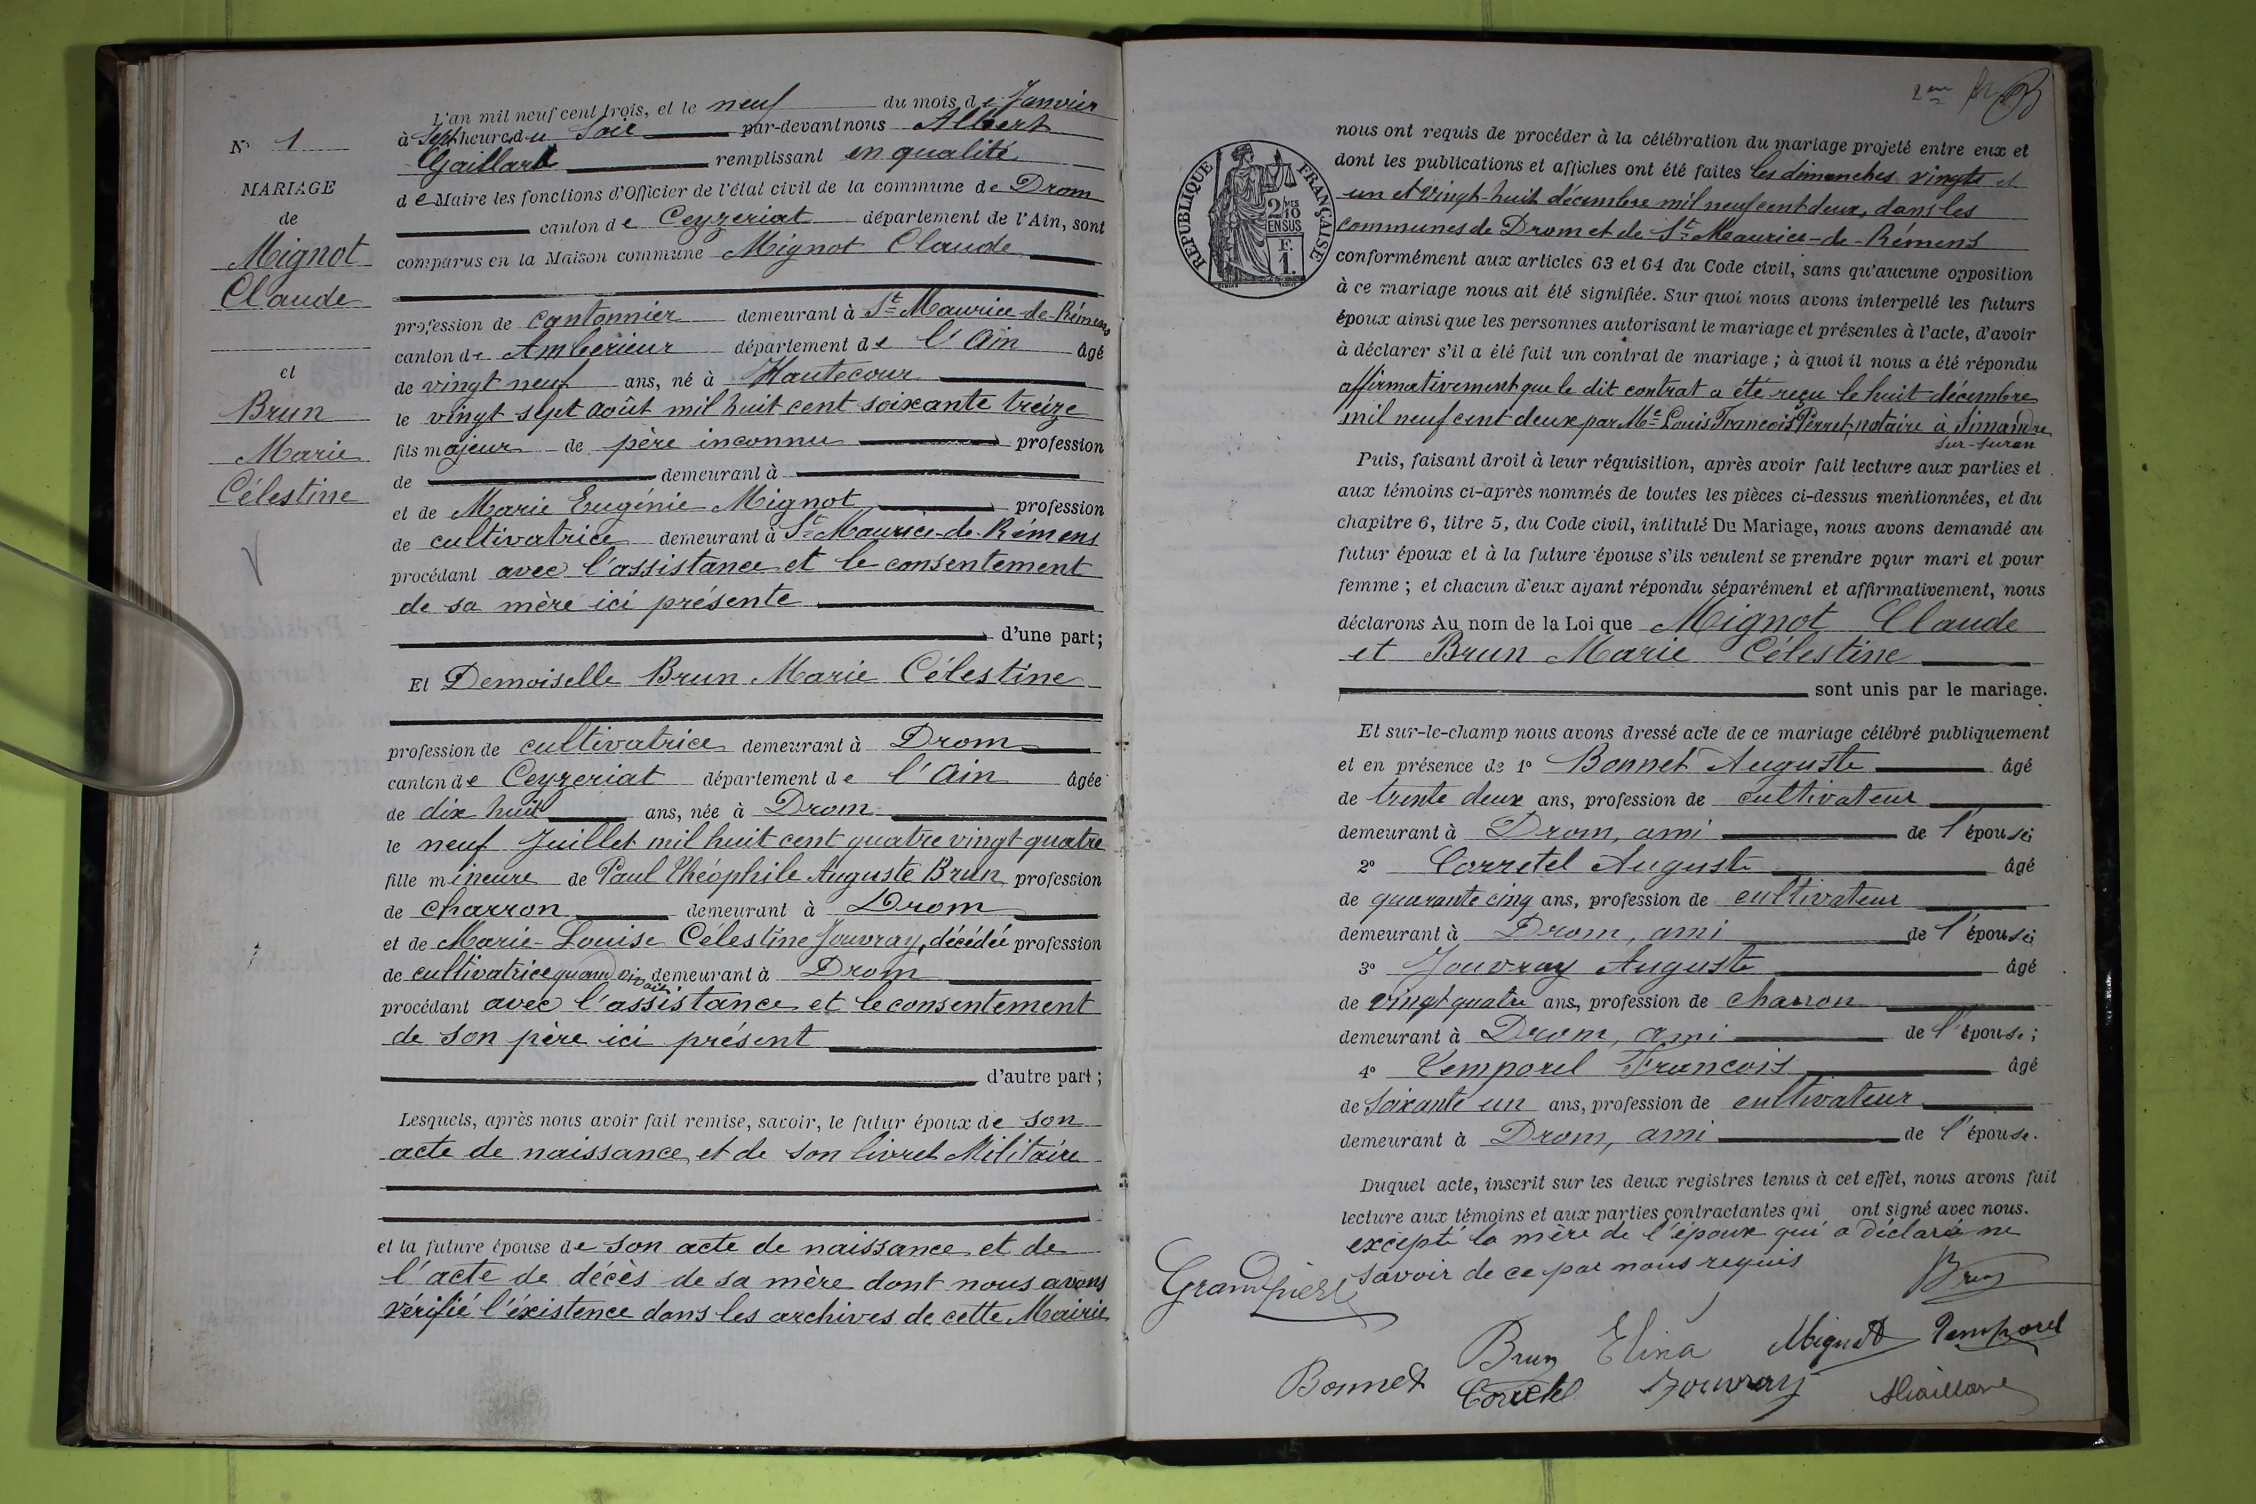 N° 1
MARIAGE
de
Mignot
Claude
et
Brun
Marie
Célestine
L'an mil neuf cent trois, et le neuf du mois de Janvier
à Sept heures du Soir par-devant nous Albert
Gaillard remplissant en qualité
de Maire les fonctions d'Officier de l'état civil de la commune de Drom
canton de Ceyzeriat département de l'Ain, sont
comparus en la Maison commune Mignot Claude
profession de cantonnier demeurant à St Maurice-de-Rémens
canton de Ambérieur département de l'Ain âgé
de vingt neuf ans, né à Hautecour
le vingt sept août mil huit cent soixante treize
fils majeur de père inconnu profession
de demeurant à
et de Marie Eugénie Mignot profession
de cultivatrice demeurant à St Maurice-de-Rémens
procédant avec l'assistance et le consentement
de sa mère ici présente
d'une part;
Et Demoiselle Brun Marie Célestine
profession de cultivatrice demeurant à Drom
canton de Ceyzeriat département de l'Ain âgée
de dix huit ans, née à Drom
le neuf Juillet mil huit cent quatre vingt quatre
fille mineure de Paul Théophile Auguste Brun profession
de charron demeurant à Drom
et de Marie-Louise Célestine Jouvray, décédée profession
de cultivatrice quand vivait demeurant à Drom
procédant avec l'assistance et le consentement
de son père ici présent
d'autre part;
Lesquels, après nous avoir fait remise, savoir, le futur époux de son
acte de naissance et de son livret Militaire
et la future épouse de son acte de naissance et de
l'acte de décès de sa mère dont nous avons
vérifié l'éxistence dans les archives de cette Mairie
2me
RÉPUBLIQUE FRANÇAISE
2/10 EN SUS
F.
1.
nous ont requis de procéder à la célébration du mariage projeté entre eux et
dont les publications et affiches ont été faites les dimanches vingt et
un et vingt-huit décembre mil neuf cent deux, dans les
communes de Drom et de St Maurice-de-Rémens
conformément aux articles 63 et 64 du Code civil, sans qu'aucune opposition
à ce mariage nous ait été signifiée. Sur quoi nous avons interpellé les futurs
époux ainsi que les personnes autorisant le mariage et présentes à l'acte, d'avoir
à déclarer s'il a été fait un contrat de mariage; à quoi il nous a été répondu
affirmativement que le dit contrat a été reçu le huit décembre
mil neuf cent deux par Me Louis François Perret, notaire à Simandre
sur-suran
Puis, faisant droit à leur réquisition, après avoir fait lecture aux parties et
aux témoins ci-après nommés de toutes les pièces ci-dessus mentionnées, et du
chapitre 6, titre 5, du Code civil, intitulé Du Mariage, nous avons demandé au
futur époux et à la future épouse s'ils veulent se prendre pour mari et pour
femme; et chacun d'eux ayant répondu séparément et affirmativement, nous
déclarons Au nom de la Loi que Mignot Claude
et Brun Marie Célestine
sont unis par le mariage.
Et sur-le-champ nous avons dressé acte de ce mariage célébré publiquement
et en présence de 1° Bonnet Auguste âgé
de trente deux ans, profession de cultivateur
demeurant à Drom, ami de l'épouse;
2° Corretel Auguste âgé
de quarante cinq ans, profession de cultivateur
demeurant à Drom, ami de l'épouse;
3° Jouvray Auguste âgé
de vingt quatre ans, profession de charron
demeurant à Drom, ami de l'épouse;
4° Temporel François âgé
de soixante un ans, profession de cultivateur
demeurant à Drom, ami de l'épouse.
Duquel acte, inscrit sur les deux registres tenus à cet effet, nous avons fait
lecture aux témoins et aux parties contractantes qui ont signé avec nous.
excepté la mère de l'époux qui a déclaré ne
savoir de ce par nous requis
Brun
Brun Elina Mignot Temporel
Bonnet Corretel Jouvray AGaillard